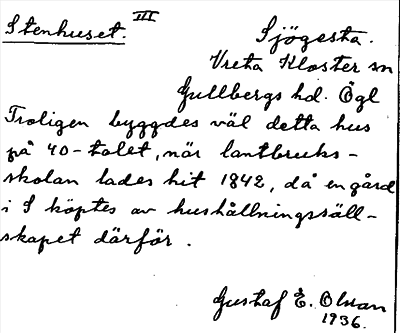 Stenhuset. III
Sjögesta.
Vreta Kloster sn
Gullbergs hd. Ögl
Troligen byggdes väl detta hus
på 40-talet, när lantbruks-
skolan lades hit 1842, då en gård
i S köptes av hushållningssäll-
skapet därför.
Gustaf E. Olsson
1936.